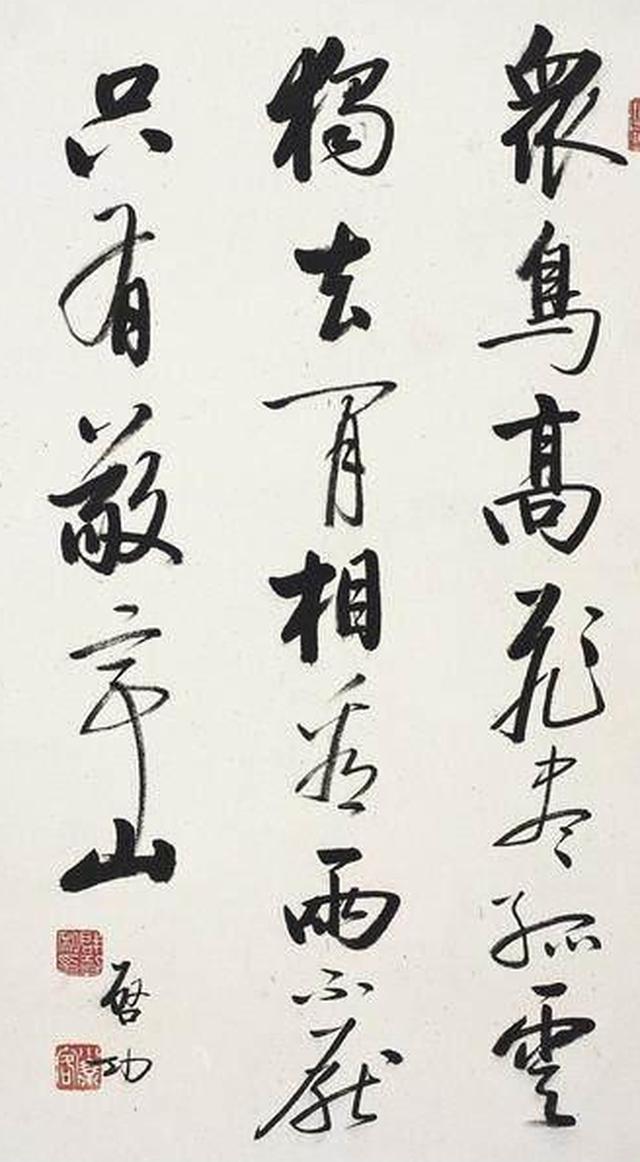 眾鳥高飛盡孤雲
獨去閒相看兩不厭
只有敬亭山
啓功